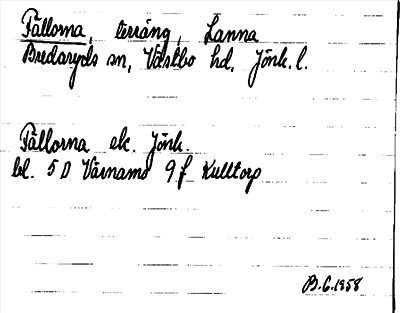 Fällorna, terräng, Lanna
Bredaryds sn, Västbo hd, Jönk. l.
Fällorna ek. Jönk.
bl. 5 D Värnamo 9 f Kulltorp
B.G. 1958